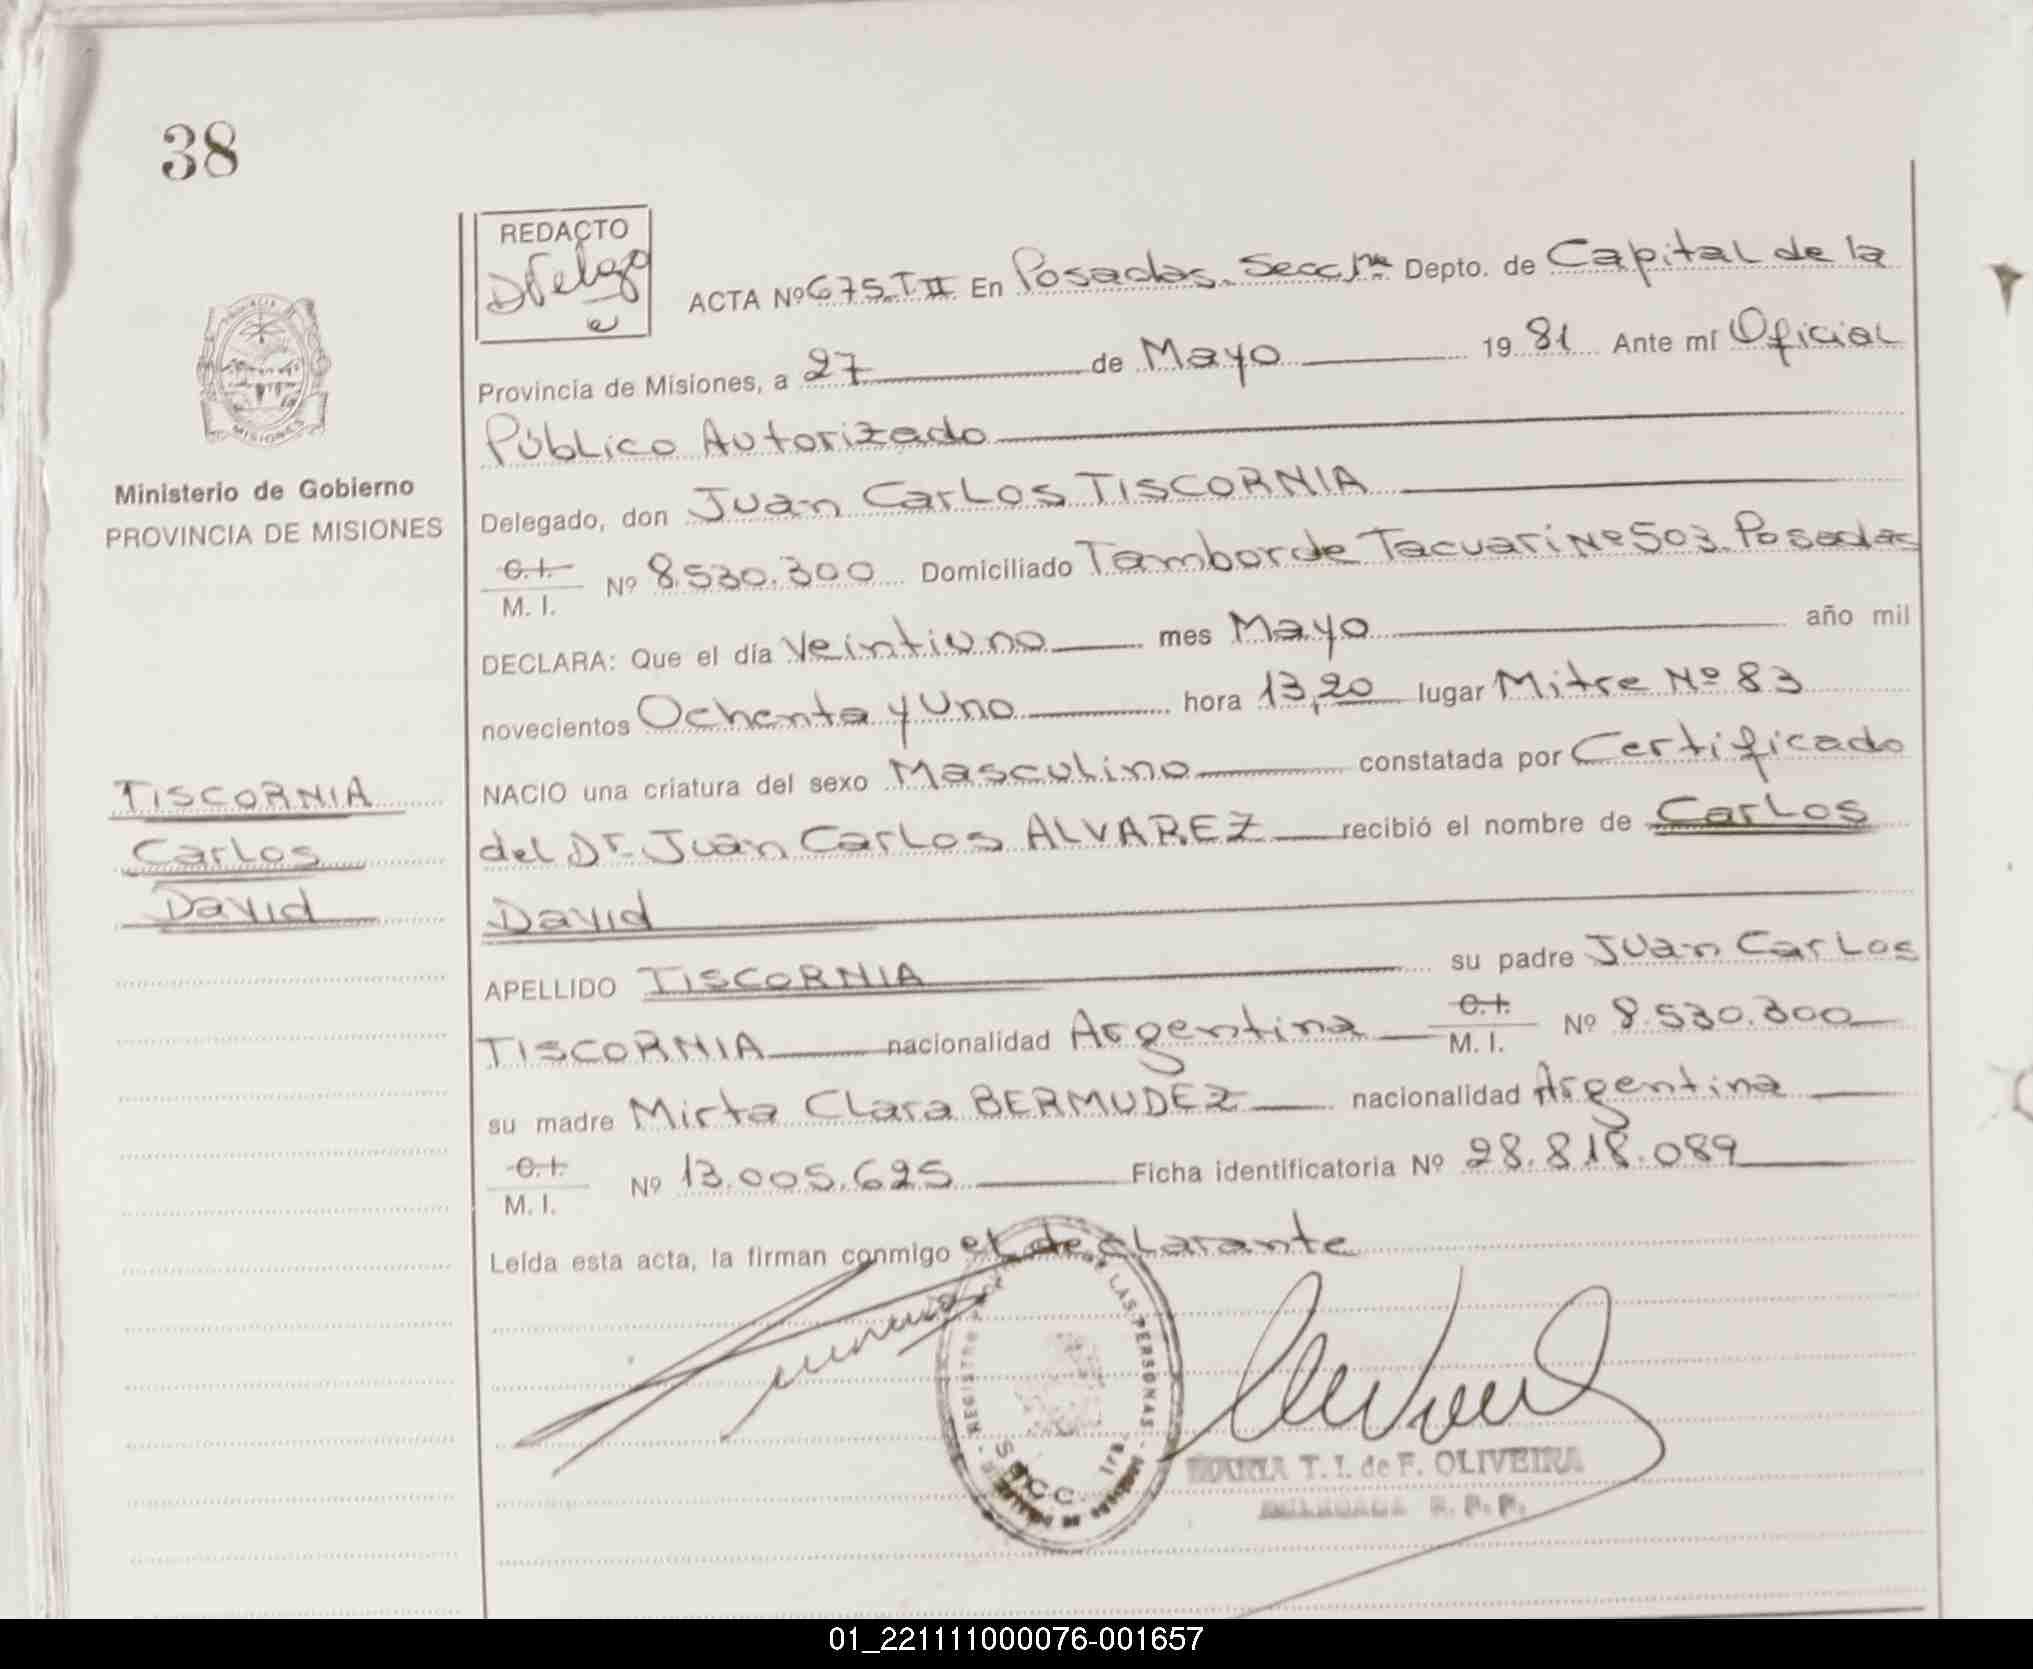 38
REDACTO
ACTA Nº 675 T II En Posadas. Secc 1ra Depto. de Capital de la
Provincia de Misiones, a 27 de Mayo 1981 Ante mí Oficial
Público Autorizado
Delegado, don Juan Carlos TISCORNIA
C.I. M. I. Nº 8.530.300 Domiciliado Tambor de Tacuari Nº 503. Posadas
DECLARA: Que el día Veintiuno mes Mayo año mil
novecientos Ochenta y Uno hora 13,20 lugar Mitre Nº 83
NACIO una criatura del sexo Masculino constatada por Certificado
del Dr. Juan Carlos ALVAREZ recibió el nombre de Carlos
David
APELLIDO TISCORNIA su padre Juan Carlos
TISCORNIA nacionalidad Argentina C.I. M. I. Nº 8.530.300
su madre Mirta Clara BERMUDEZ nacionalidad Argentina
C.I. M. I. Nº 13.005.625 Ficha identificatoria Nº 28.818.089
Leída esta acta, la firman conmigo el declarante
MISIONES
Ministerio de Gobierno
PROVINCIA DE MISIONES
TISCORNIA
Carlos
David
REGISTRO DE LAS PERSONAS
SECC.
MARIA T. I. de F. OLIVEIRA
DELEGADA R. P. P.
01_221111000076-001657